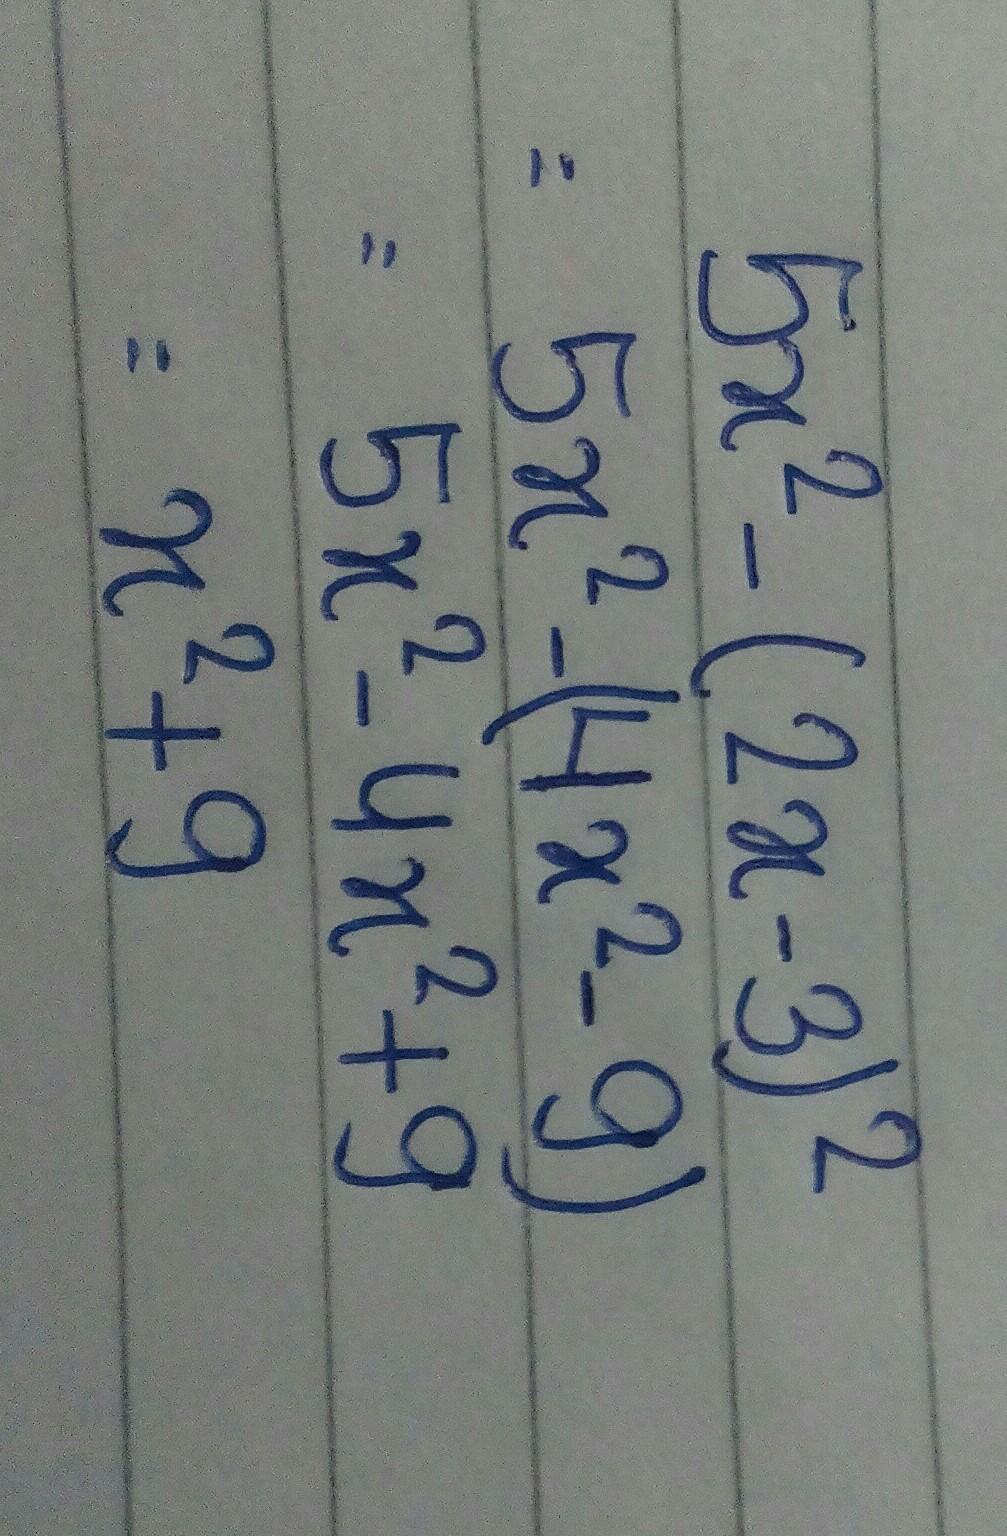 5x² - (2x - 3)²
= 5x² - (4x² - 9)
= 5x² - 4x² + 9
= x² + 9